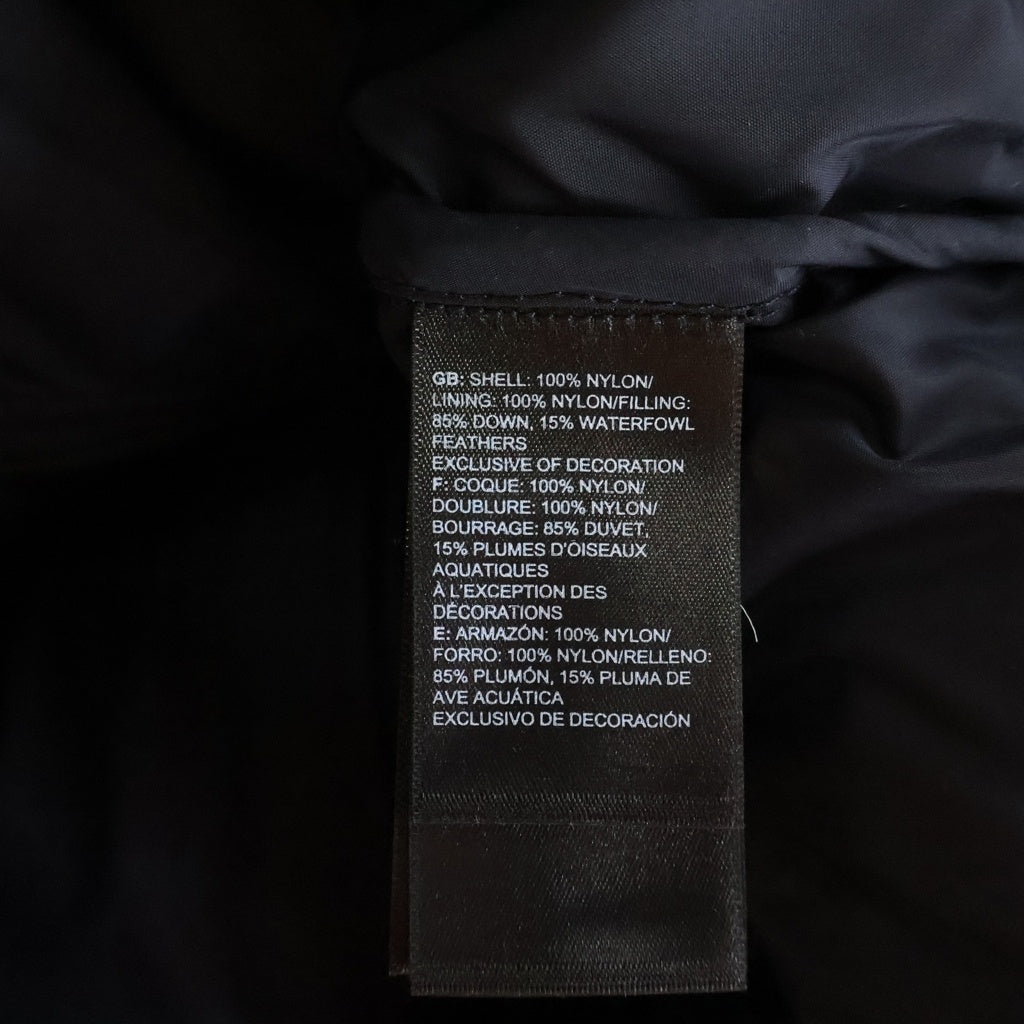 GB: SHELL: 100% NYLON/
LINING: 100% NYLON/FILLING:
85% DOWN, 15% WATERFOWL
FEATHERS
EXCLUSIVE OF DECORATION
F: COQUE: 100% NYLON/
DOUBLURE: 100% NYLON/
BOURRAGE: 85% DUVET,
15% PLUMES D'OISEAUX
AQUATIQUES
À L'EXCEPTION DES
DÉCORATIONS
E: ARMAZÓN: 100% NYLON/
FORRO: 100% NYLON/RELLENO:
85% PLUMÓN, 15% PLUMA DE
AVE ACUÁTICA
EXCLUSIVO DE DECORACIÓN